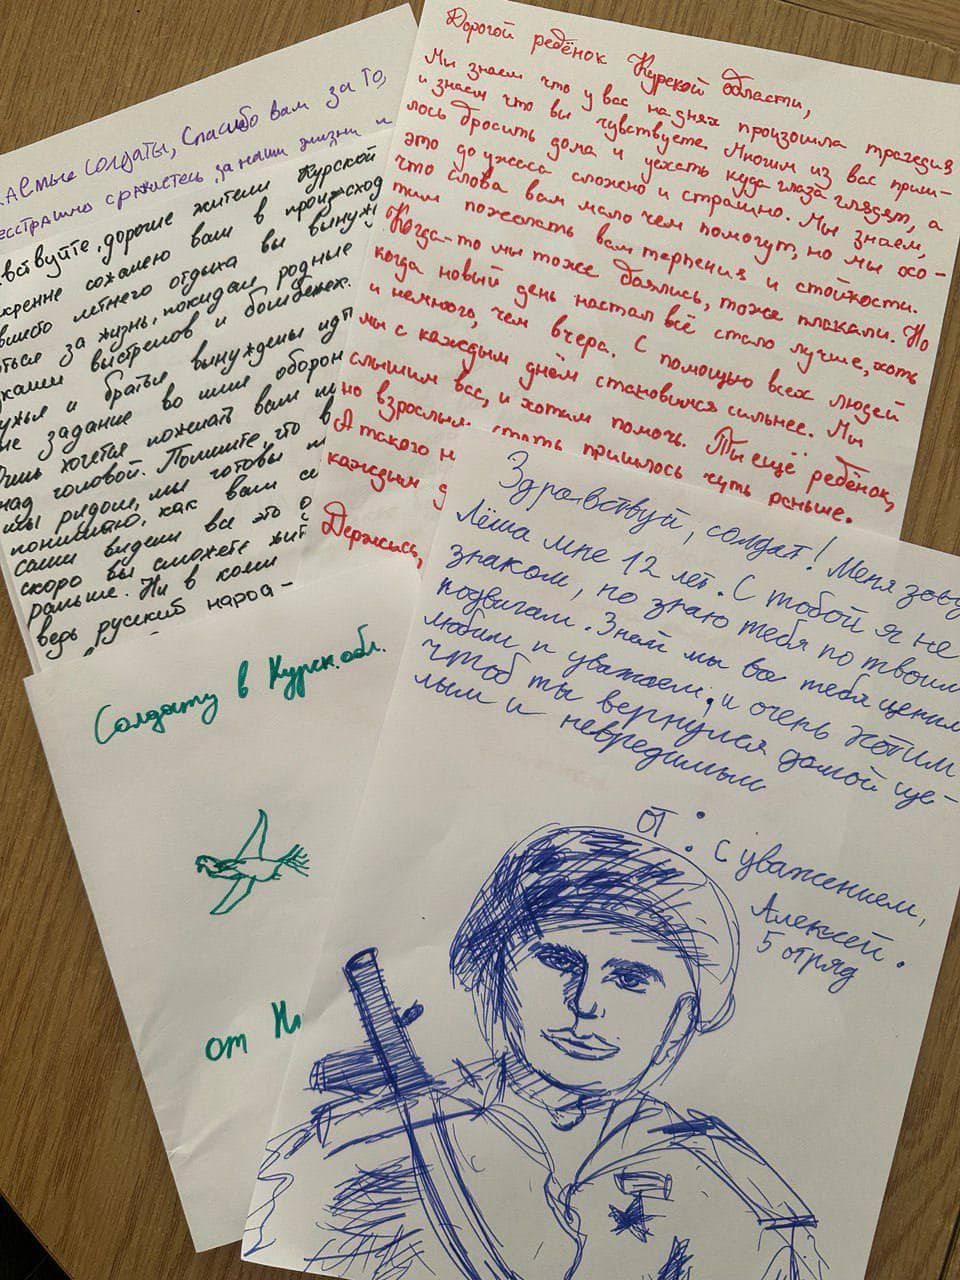 Солдаты, Спасибо вам за то,
бесстрашно сражаетесь за наши жизни и
дорогие жители Курской
сожалею вам в происход
летнего отдыха вы вынуж
за жизнь, покидали родные
выстрелов и бомбёжек.
и братья вынуждены идт
задание во имя оборон
хочется пожелать вам
над головой. Помните, что
мы рядом, мы готовы
как вам
сами видели все это
скоро вы сможете жит
раньше. Ни в коем
ведь русский народ -
Дорогой ребёнок Курской области,
Мы знаем что у вас на днях произошла трагедия
и знаем что вы чувствуете. Многим из вас приш-
лось бросить дома и уехать куда глаза глядят, а
это до ужаса сложно и страшно. Мы знаем,
что слова вам мало чем помогут, но мы хо-
тим пожелать вам терпения и стойкости.
Когда-то мы тоже боялись, тоже плакали. Но
когда новый день настал всё стало лучше, хоть
и немного, чем вчера. С помощью всех людей
мы с каждым днём становимся сильнее. Мы
слышим вас, и хотим помочь. Ты ещё ребёнок,
но взрослым стать пришлось чуть раньше.
А такого н
каждым д
Держись,
Солдату в Курск.обл.
от
Здравствуй, солдат! Меня зову
Лёша мне 12 лет. С тобой я не
знаком, но знаю тебя по твоим
подвигам. Знай мы во тебя ценим
любим и уважаем, и очень хотим
чтоб ты вернулся домой це-
лым и невредимым
от: С уважением,
Алексей.
5 отряд